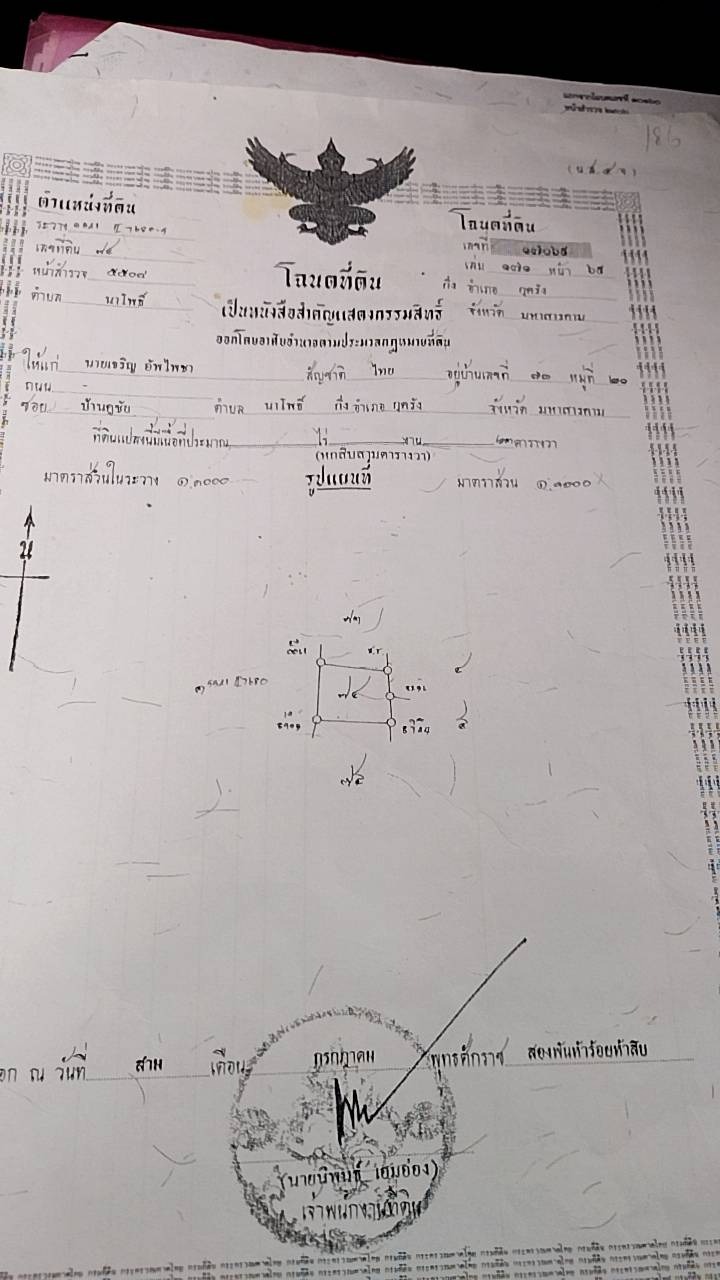 (น.ส.๔ จ)
ตำแหน่งที่ดิน
ระวาง
เลขที่ดิน ๗๔
หน้าสำรวจ ๕๕๐๗
ตำบล นาโพธิ์
โฉนดที่ดิน
เลขที่ ๑๗๐๖๕
เล่ม ๑๗๑ หน้า ๖๕
กิ่ง อำเภอ กุดรัง
จังหวัด มหาสารคาม
โฉนดที่ดิน
เป็นหนังสือสำคัญแสดงกรรมสิทธิ์
ออกโดยอาศัยอำนาจตามประมวลกฎหมายที่ดิน
ให้แก่ นายเจริญ อัพไพชา สัญชาติ ไทย อยู่บ้านเลขที่ ๗๓ หมู่ที่ ๒๐
ถนน -
ซอย บ้านภูชัย ตำบล นาโพธิ์ กิ่งอำเภอ กุดรัง จังหวัด มหาสารคาม
ที่ดินแปลงนี้มีเนื้อที่ประมาณ ไร่ งาน ๖๓ ตารางวา
(หกสิบสามตารางวา)
มาตราส่วนในระวาง ๑:๑๐๐๐ รูปแผนที่ มาตราส่วน ๑:๑๐๐๐
น
๗๓
๗๔
๗๕
ออก ณ วันที่ สาม เดือน กรกฎาคม พุทธศักราช สองพันห้าร้อยห้าสิบ
เจ้าพนักงานที่ดิน